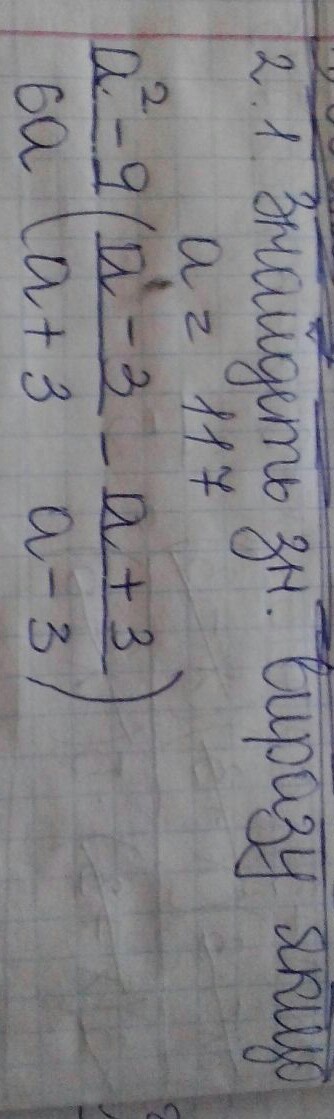 2.1. Знайдеть зн. виразу якщо
a = 117
a² - 9 / 6a ( a - 3 / a + 3 - a + 3 / a - 3 )